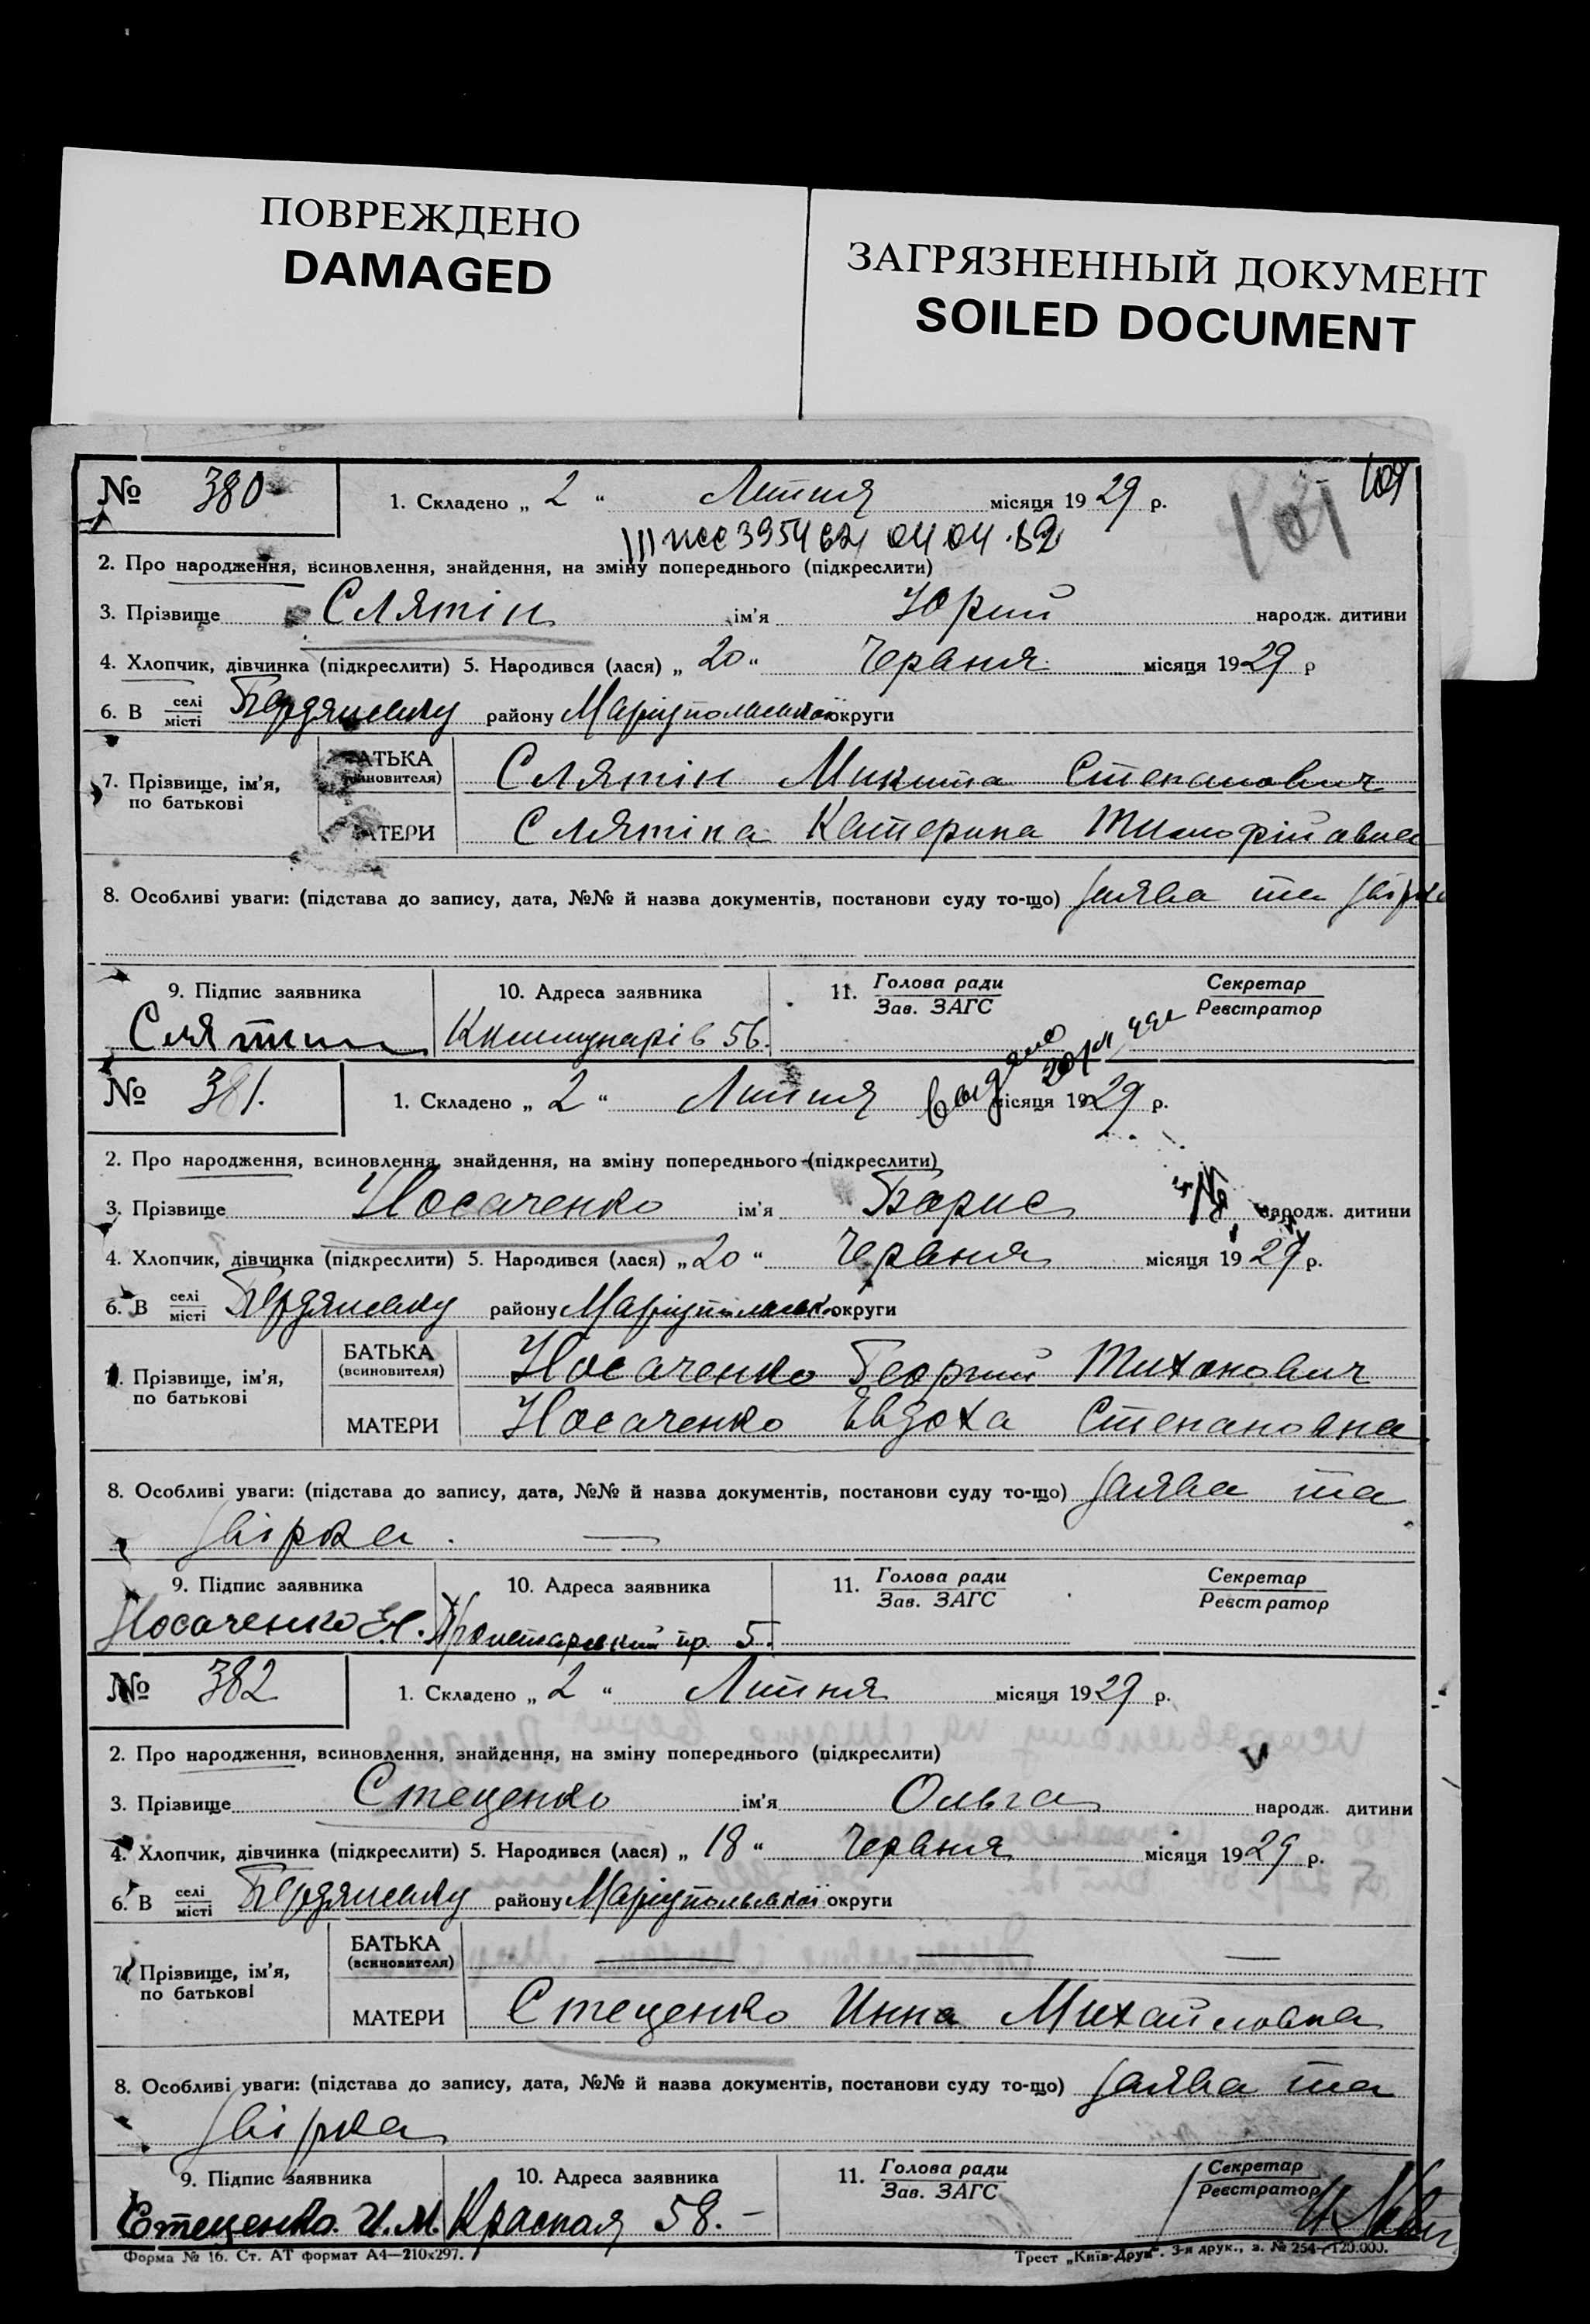 ПОВРЕЖДЕНО
DAMAGED
ЗАГРЯЗНЕННЫЙ ДОКУМЕНТ
SOILED DOCUMENT
№ 380
1. Складено „ 2 “ Липня місяця 1929 р.
101
2. Про народження, всиновлення, знайдення, на зміну попереднього (підкреслити)
3. Прізвище Слятін ім’я Юрий народж. дитини
4. Хлопчик, дівчинка (підкреслити) 5. Народився (лася) „ 20 “ Червня місяця 1929 р
6. В селі місті Бердянську району Маріупольської округи
7. Прізвище, ім’я, по батькові
БАТЬКА (всиновителя) Слятін Микита Степанович
МАТЕРИ Слятіна Катерина
8. Особливі уваги: (підстава до запису, дата, №№ й назва документів, постанови суду то-що) заява та звірка
9. Підпис заявника
10. Адреса заявника
11. Голова ради Зав. ЗАГС
Секретар Реєстратор
Слятин Коммунарів 56.
№ 381.
1. Складено „ 2 “ Липня місяця 1929 р.
2. Про народження, всиновлення, знайдення, на зміну попереднього (підкреслити)
3. Прізвище Носаченко ім’я Борис народж. дитини
4. Хлопчик, дівчинка (підкреслити) 5. Народився (лася) „ 20 “ Червня місяця 1929 р.
6. В селі місті Бердянську району Маріупольськ. округи
7. Прізвище, ім’я, по батькові
БАТЬКА (всиновителя) Носаченко Георгий Тихонович
МАТЕРИ Носаченко Евдоха Степановна
8. Особливі уваги: (підстава до запису, дата, №№ й назва документів, постанови суду то-що) заява та
звірка. —
9. Підпис заявника
10. Адреса заявника
11. Голова ради Зав. ЗАГС
Секретар Реєстратор
Носаченко Пролетарский пр. 5.
№ 382
1. Складено „ 2 “ Липня місяця 1929 р.
2. Про народження, всиновлення, знайдення, на зміну попереднього (підкреслити)
3. Прізвище Стеценко ім’я Ольга народж. дитини
4. Хлопчик, дівчинка (підкреслити) 5. Народився (лася) „ 18 “ Червня місяця 1929 р.
6. В селі місті Бердянську району Маріупольської округи
7. Прізвище, ім’я, по батькові
БАТЬКА (всиновителя) — — —
МАТЕРИ Стеценко Инна Михайловна
8. Особливі уваги: (підстава до запису, дата, №№ й назва документів, постанови суду то-що) заява та
звірка
9. Підпис заявника
10. Адреса заявника
11. Голова ради Зав. ЗАГС
Секретар Реєстратор
Стеценко. И. М. Красная 58. –
Форма № 16. Ст. АТ формат А4—210х297.
Трест „Київ-Друк“. 3-я друк., з. № 254—120.000.